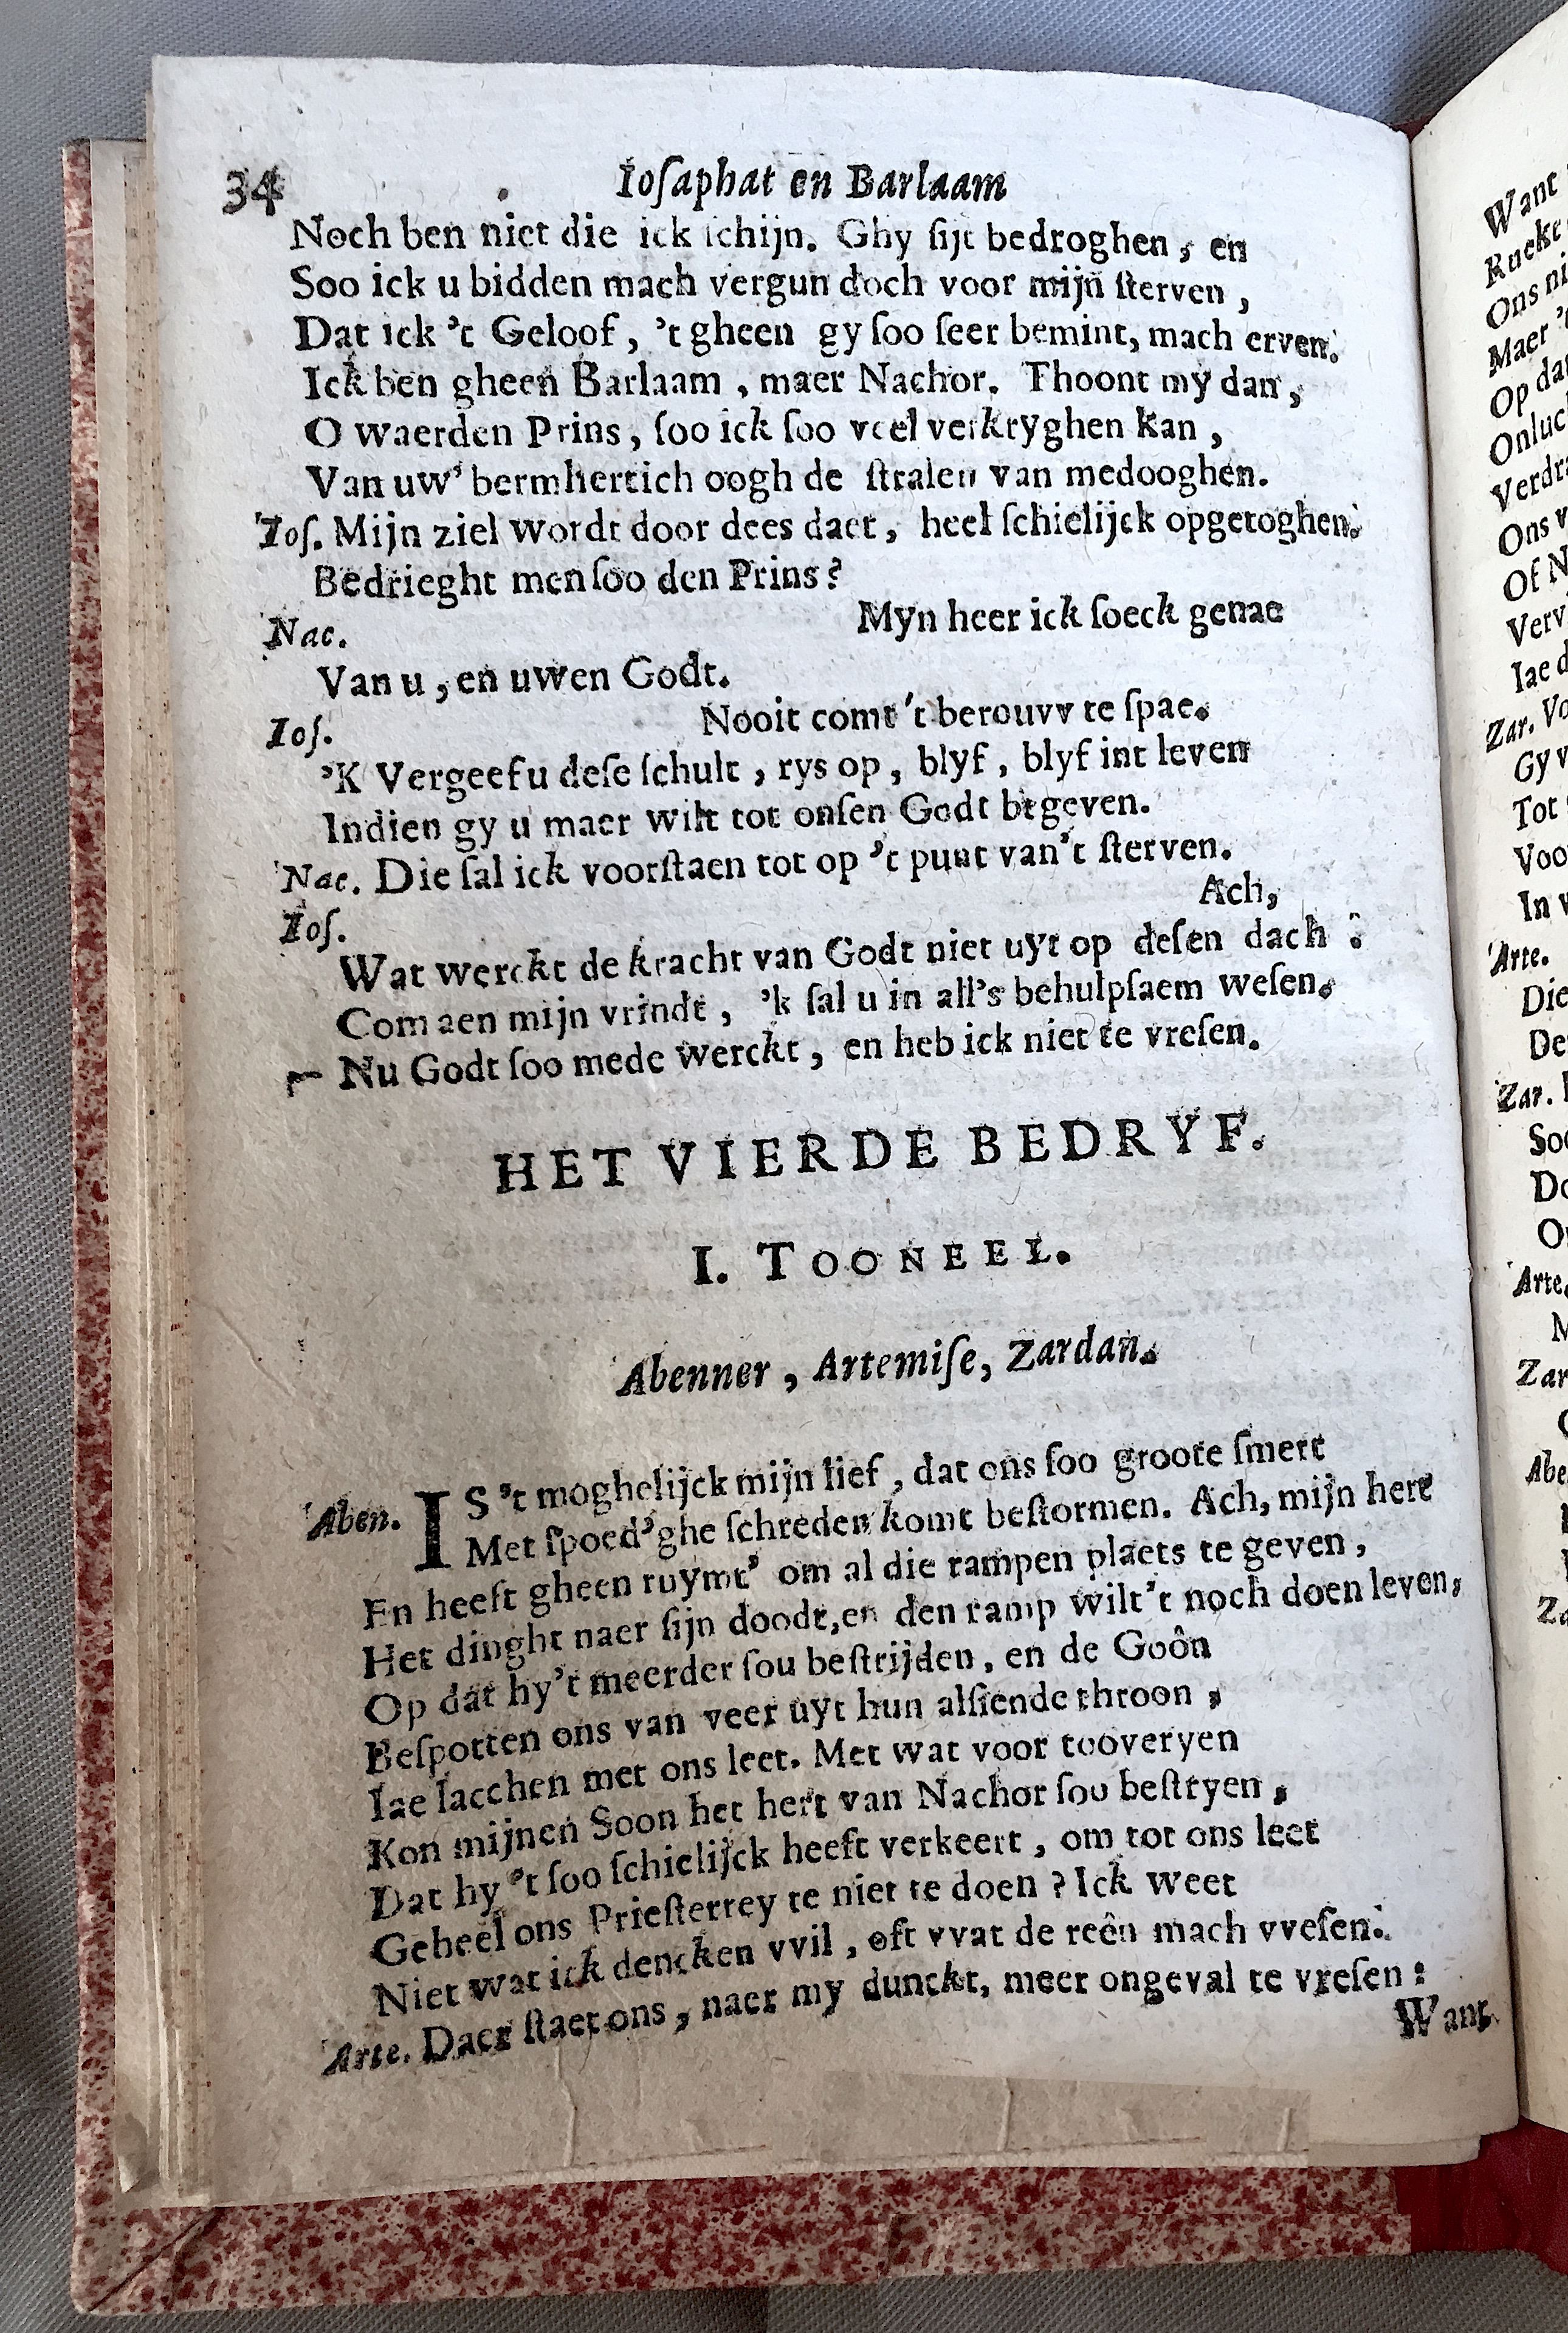 34 Ioſaphat en Barlaam
Noch ben niet die ick ſchijn. Ghy ſijt bedroghen, en
Soo ick u bidden mach vergun doch voor mijn ſterven,
Dat ick 't Geloof, 't gheen gy ſoo ſeer bemint, mach erven.
Ick ben gheen Barlaam, maer Nachor. Thoont my dan,
O waerden Prins, ſoo ick ſoo veel verkryghen kan,
Van uw' bermhertich oogh de ſtralen van medooghen.
Ioſ. Mijn ziel wordt door dees daet, heel ſchielijck opgetoghen.
Bedrieght men ſoo den Prins?
Nac. Myn heer ick ſoeck genae
Van u, en uwen Godt.
Ioſ. Nooit comt 't berouvv te ſpae.
'K Vergeef u deſe ſchult, rys op, blyf, blyf int leven
Indien gy u maer wilt tot onſen Godt begeven.
Nac. Die ſal ick voorſtaen tot op 't punt van't ſterven.
Ioſ. Ach,
Wat werckt de kracht van Godt niet uyt op deſen dach:
Com aen mijn vrindt, 'k ſal u in all's behulpſaem weſen.
Nu Godt ſoo mede werckt, en heb ick niet te vreſen.
HET VIERDE BEDRYF.
I. TOONEEL.
Abenner, Artemiſe, Zardan.
Aben. IS 't moghelijck mijn lief, dat ons ſoo groote ſmert
Met ſpoed'ghe ſchreden komt beſtormen. Ach, mijn hert
En heeft gheen ruymt' om al die rampen plaets te geven,
Het dinght naer ſijn doodt, en den ramp wilt't noch doen leven,
Op dat hy't meerder ſou beſtrijden, en de Goôn
Beſpotten ons van veer uyt hun alſiende throon,
Iae lacchen met ons leet. Met wat voor tooveryen
Kon mijnen Soon het hert van Nachor ſou beſtryen,
Dat hy 't ſoo ſchielijck heeft verkeert, om tot ons leet
Geheel ons Prieſterrey te niet te doen? Ick weet
Niet wat ick dencken vvil, oft vvat de reên mach vveſen.
Arte. Daer ſtaet ons, naer my dunckt, meer ongeval te vreſen:
Want
Want
Ons
Maer
Zar.
Gy
Tot
In
Arte.
Die
Zar.
Arte.